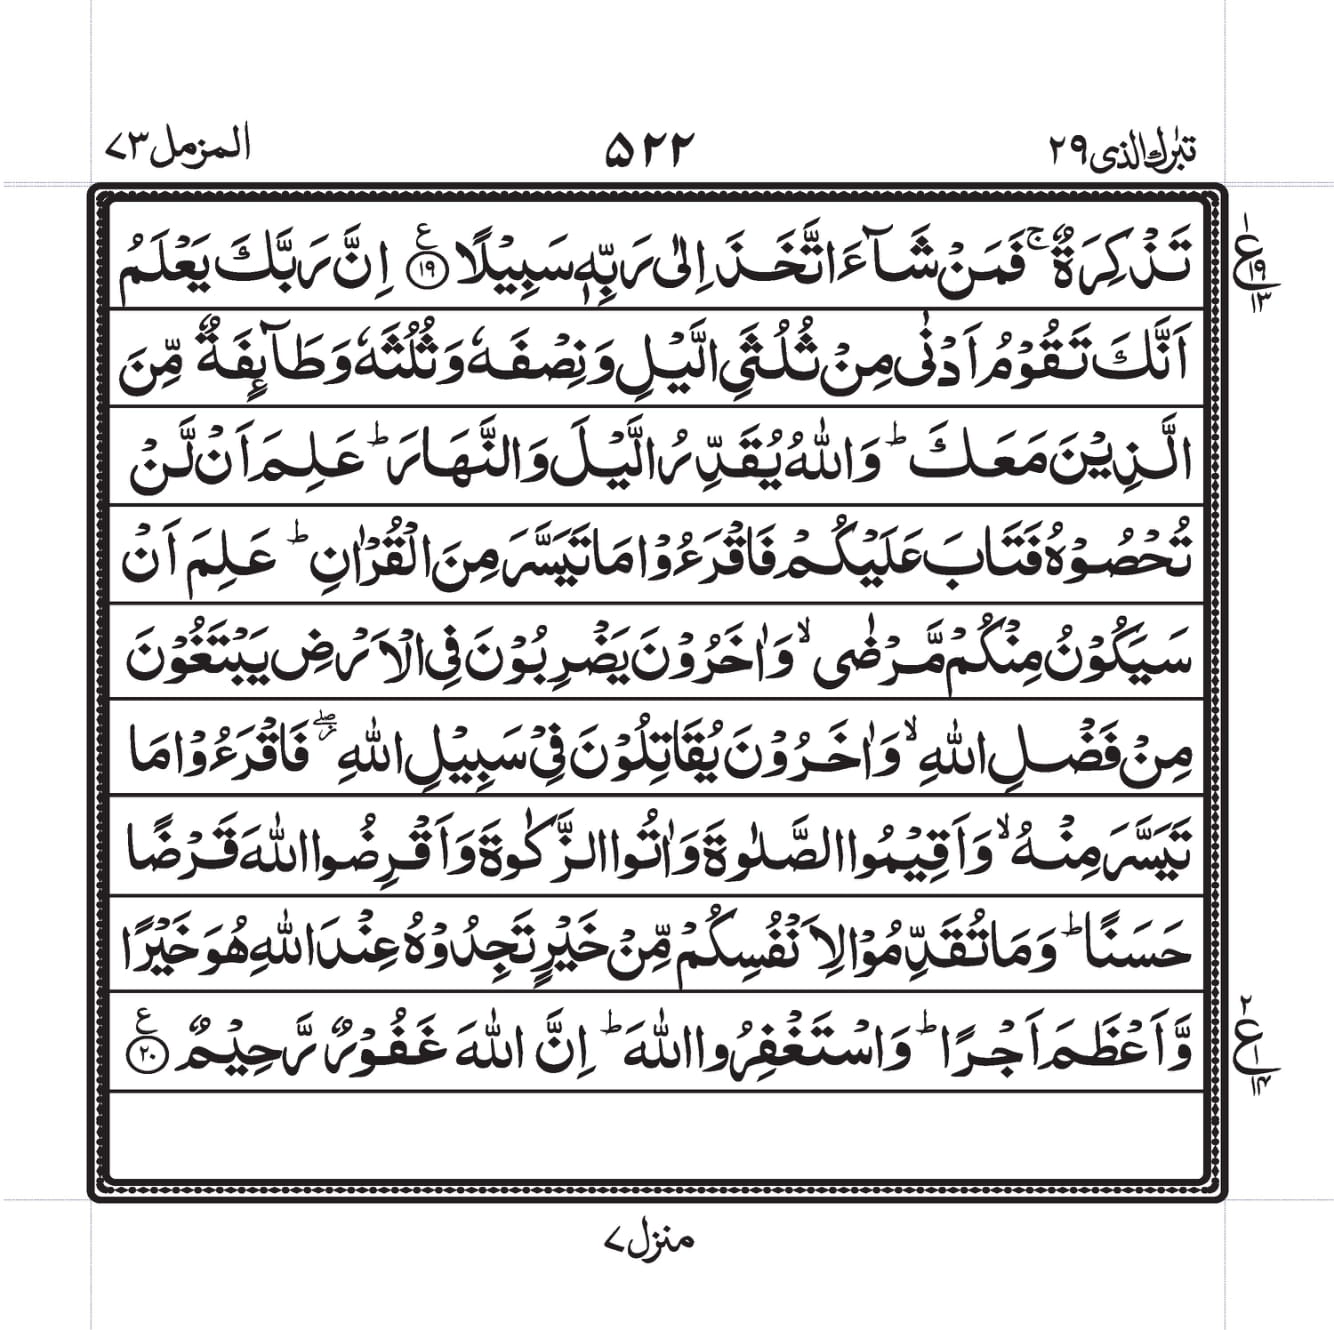 تبٰرك الذی ۲۹
۵۲۲
المزمل ۷۳
تَذۡكِرَةٌ ۚ فَمَنۡ شَآءَ اتَّخَذَ اِلٰى رَبِّهٖ سَبِيۡلًا ع ۱۹ اِنَّ رَبَّكَ يَعۡلَمُ
اَنَّكَ تَقُوۡمُ اَدۡنٰى مِنۡ ثُلُثَىِ الَّيۡلِ وَنِصۡفَهٗ وَثُلُثَهٗ وَطَآٮِٕفَةٌ مِّنَ
الَّذِيۡنَ مَعَكَ‌ ؕ وَاللّٰهُ يُقَدِّرُ الَّيۡلَ وَالنَّهَارَ‌ ؕ عَلِمَ اَنۡ لَّنۡ
تُحۡصُوۡهُ فَتَابَ عَلَيۡكُمۡ‌ فَاقۡرَءُوۡا مَا تَيَسَّرَ مِنَ الۡقُرۡاٰنِ‌ ؕ عَلِمَ اَنۡ
سَيَكُوۡنُ مِنۡكُمۡ مَّرۡضٰى‌ ۙ وَاٰخَرُوۡنَ يَضۡرِبُوۡنَ فِى الۡاَرۡضِ يَبۡتَغُوۡنَ
مِنۡ فَضۡلِ اللّٰهِ‌ ۙ وَاٰخَرُوۡنَ يُقَاتِلُوۡنَ فِىۡ سَبِيۡلِ اللّٰهِ ‌ۖ  فَاقۡرَءُوۡا مَا
تَيَسَّرَ مِنۡهُ‌ ۙ وَاَقِيۡمُوا الصَّلٰوةَ وَاٰتُوا الزَّكٰوةَ وَاَقۡرِضُوا اللّٰهَ قَرۡضًا
حَسَنًا‌ ؕ وَمَا تُقَدِّمُوۡا لِاَنۡفُسِكُمۡ مِّنۡ خَيۡرٍ تَجِدُوۡهُ عِنۡدَ اللّٰهِ هُوَ خَيۡرًا
وَّاَعۡظَمَ اَجۡرًا‌ ؕ وَاسۡتَغۡفِرُوا اللّٰهَ‌ ؕ اِنَّ اللّٰهَ غَفُوۡرٌ رَّحِيۡمٌ ع ۲۰
۱ ع ۱۹ ۱۳
۲ ع ۱ ۱۴
منزل ۷